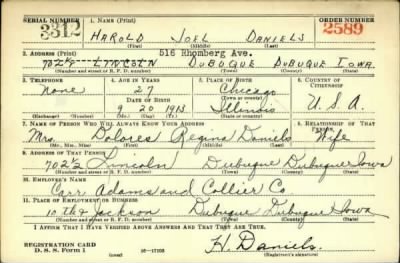 SERIAL NUMBER 1. NAME (Print) ORDER NUMBER
3312 HAROLD JOEL DANIELS 2589
(First) (Middle) (Last)
2. ADDRESS (Print) 516 Rhomberg Ave.
702½ LINCOLN DUBUQUE DUBUQUE IOWA.
(Number and street or R. F. D. number) (Town) (County) (State)
3. TELEPHONE 4. AGE IN YEARS 5. PLACE OF BIRTH 6. COUNTRY OF CITIZENSHIP
None 27 Chicago
DATE OF BIRTH (Town or county)
9 20 1913 Illinois U.S.A.
(Exchange) (Number) (Mo.) (Day) (Yr.) (State or country)
7. NAME OF PERSON WHO WILL ALWAYS KNOW YOUR ADDRESS 8. RELATIONSHIP OF THAT PERSON
Mrs. Dolores Regina Daniels Wife
(Mr., Mrs., Miss) (First) (Middle) (Last)
9. ADDRESS OF THAT PERSON
702½ Lincoln Dubuque Dubuque Iowa
(Number and street or R. F. D. number) (Town) (County) (State)
10. EMPLOYER'S NAME
Carr Adams and Collier Co
11. PLACE OF EMPLOYMENT OR BUSINESS
10th & Jackson Dubuque Dubuque Iowa
(Number and street or R. F. D. number) (Town) (County) (State)
I AFFIRM THAT I HAVE VERIFIED ABOVE ANSWERS AND THAT THEY ARE TRUE.
REGISTRATION CARD
D. S. S. Form 1 (over) 16—17105 H. Daniels.